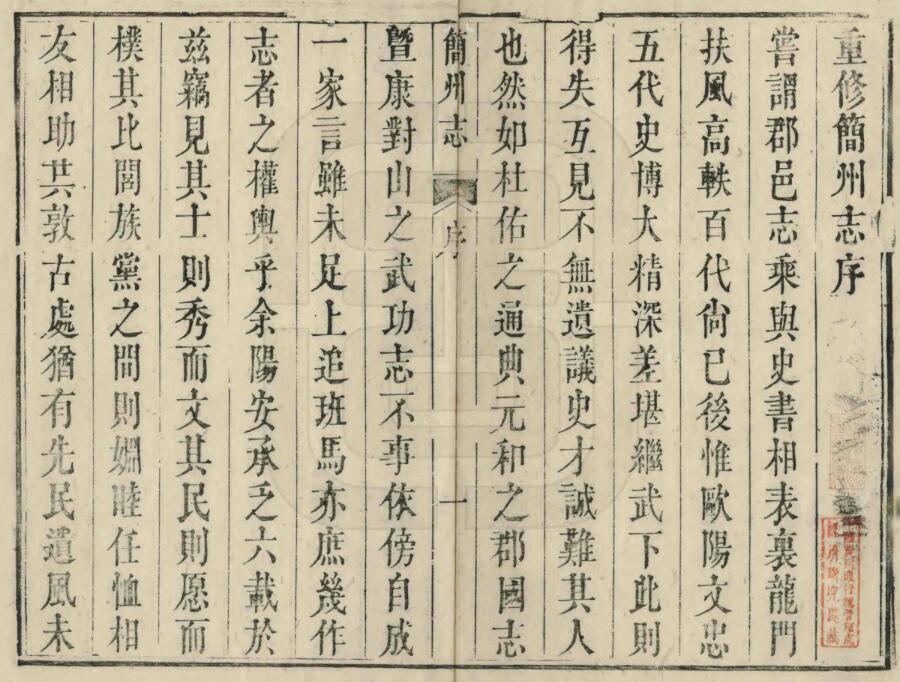 重修簡州志序
嘗謂郡邑志乘與史書相表裏龍門
扶風高軼百代尙已後惟歐陽文忠
五代史博大精深差堪繼武下此則
得失互見不無遺議史才誠難其人
也然如杜佑之通典元和之郡國志
簡州志 序 一
曁康對山之武功志不事依傍自成
一家言雖未足上追班馬亦庶幾作
志者之權輿乎余陽安承乏六載於
茲竊見其士則秀而文其民則愿而
樸其比閭族黨之間則婣睦任恤相
友相助其敦古處猶有先民遺風未